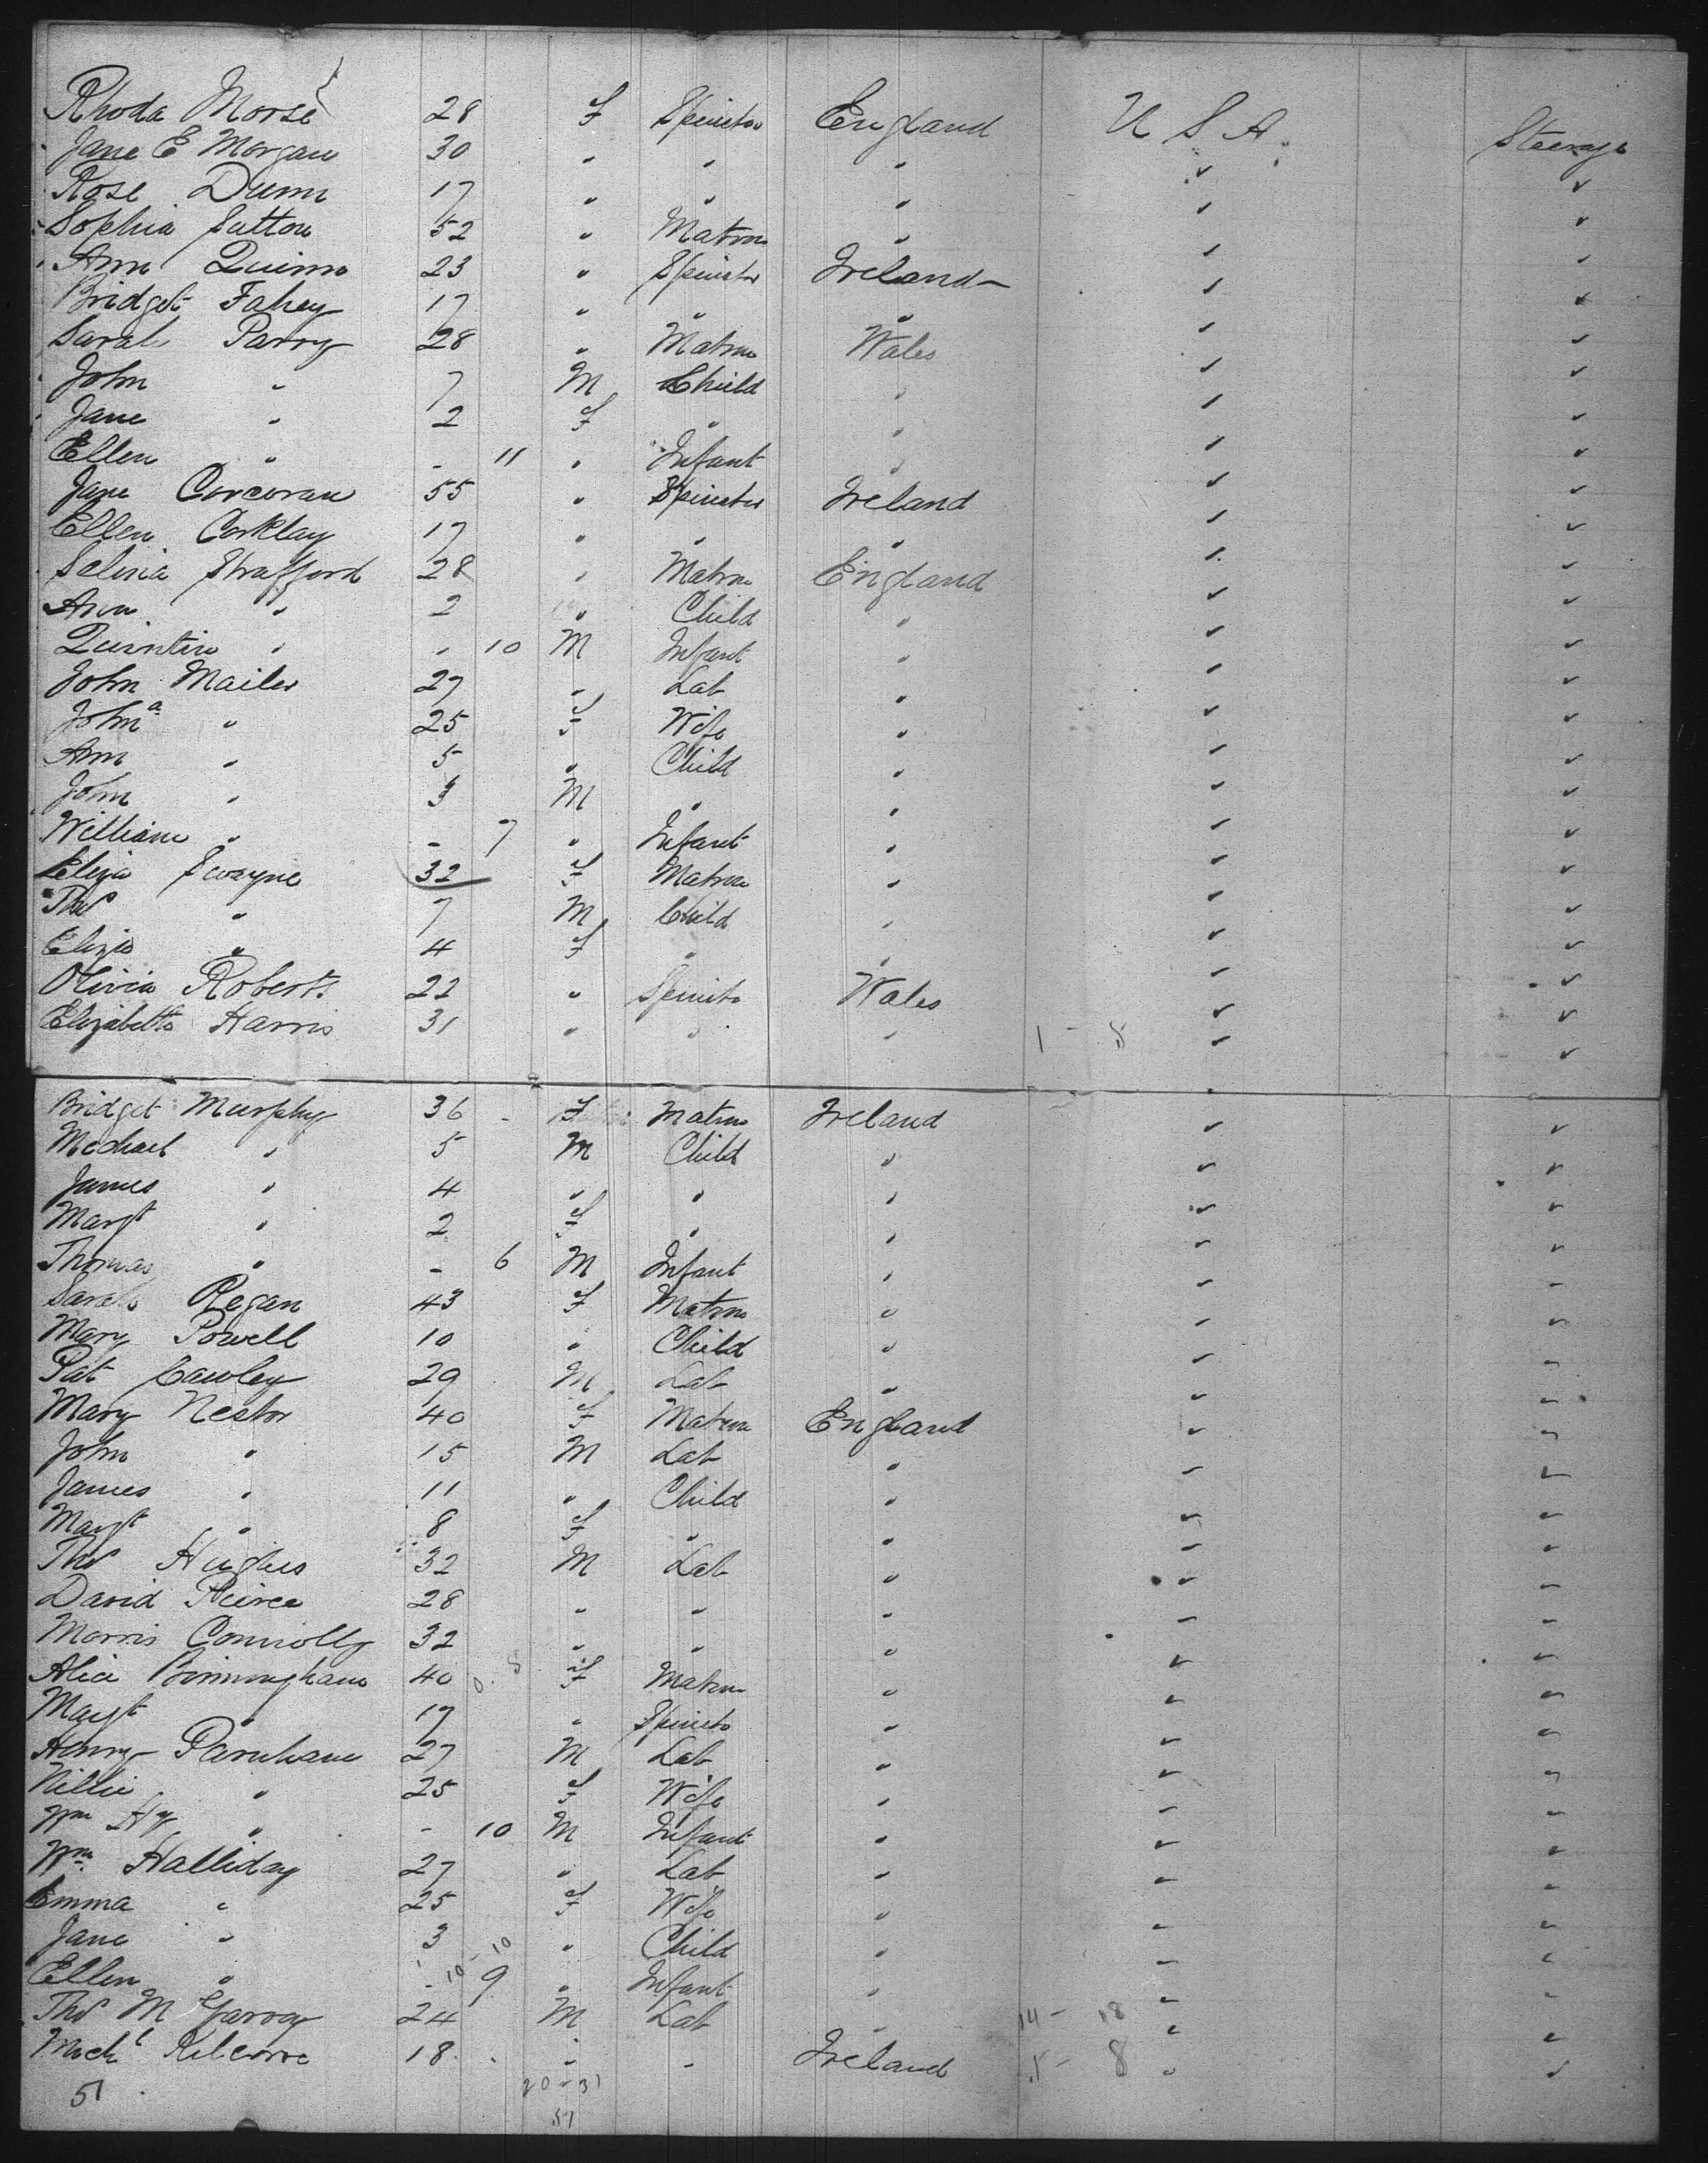 Rhoda Morse 28 F Spinster England U S A Steerage
Jane E Morgan 30 " " " " "
Rose Dunn 17 " " " " "
Sophia Sutton 52 " Matron " " "
Ann Quinn 23 " Spinster Ireland " "
Bridget Fahey 17 " " " " "
Sarah Parry 28 " Matron Wales " "
John " 7 M Child " " "
Jane " 2 F " " " "
Ellen " - 11 " Infant " " "
Jane Corcoran 55 " Spinster Ireland " "
Ellen Corklay 17 " " " " "
Selina Strafford 28 " Matron England " "
Ann " 2 " Child " " "
Quintin " " 10 M Infant " " "
John Mailer 27 " Lab " " "
John a " 25 F Wife " " "
Ann " 5 " Child " " "
John " 3 M " " " "
William " - 7 " Infant " " "
Eliza Swayne 32 F Matron " " "
Thos " 7 M Child " " "
Eliza " 4 F " " " "
Olivia Roberts 22 " Spinster Wales " "
Elizabeth Harris 31 " " " 1 - 5 " "
Bridget Murphy 36 - F Matron Ireland " "
Michael " 5 M Child " " "
James " 4 " " " " "
Margt " 2 F " " " "
Thomas " - 6 M Infant " " "
Sarah Regan 43 F Matron " " "
Mary Powell 10 " Child " " "
Pat Cawley 29 M Lab " " "
Mary Nestor 40 F Matron England " "
John " 15 M Lab " " "
James " 11 " Child " " "
Margt " 8 F " " " "
Thos Hughes 32 M Lab " " "
David Peirce 28 " " " " "
Morris Connolly 32 " " " " "
Alice Birmingham 40 F Matron " " "
Margt " 17 " Spinster " " "
Henry Parnham 27 M Lab " " "
Nellie " 25 F Wife " " "
Wm Hy " - 10 M Infant " " "
Wm Halliday 27 " Lab " " "
Emma " 25 F Wife " " "
Jane " 3 " Child " " "
10 - 10
Ellen " - 9 " Infant " " "
Thos M Garvey 24 M Lab " 14 - 18 " "
Michl 18 " " Ireland 1 - 8 " "
51 20 - 31
51